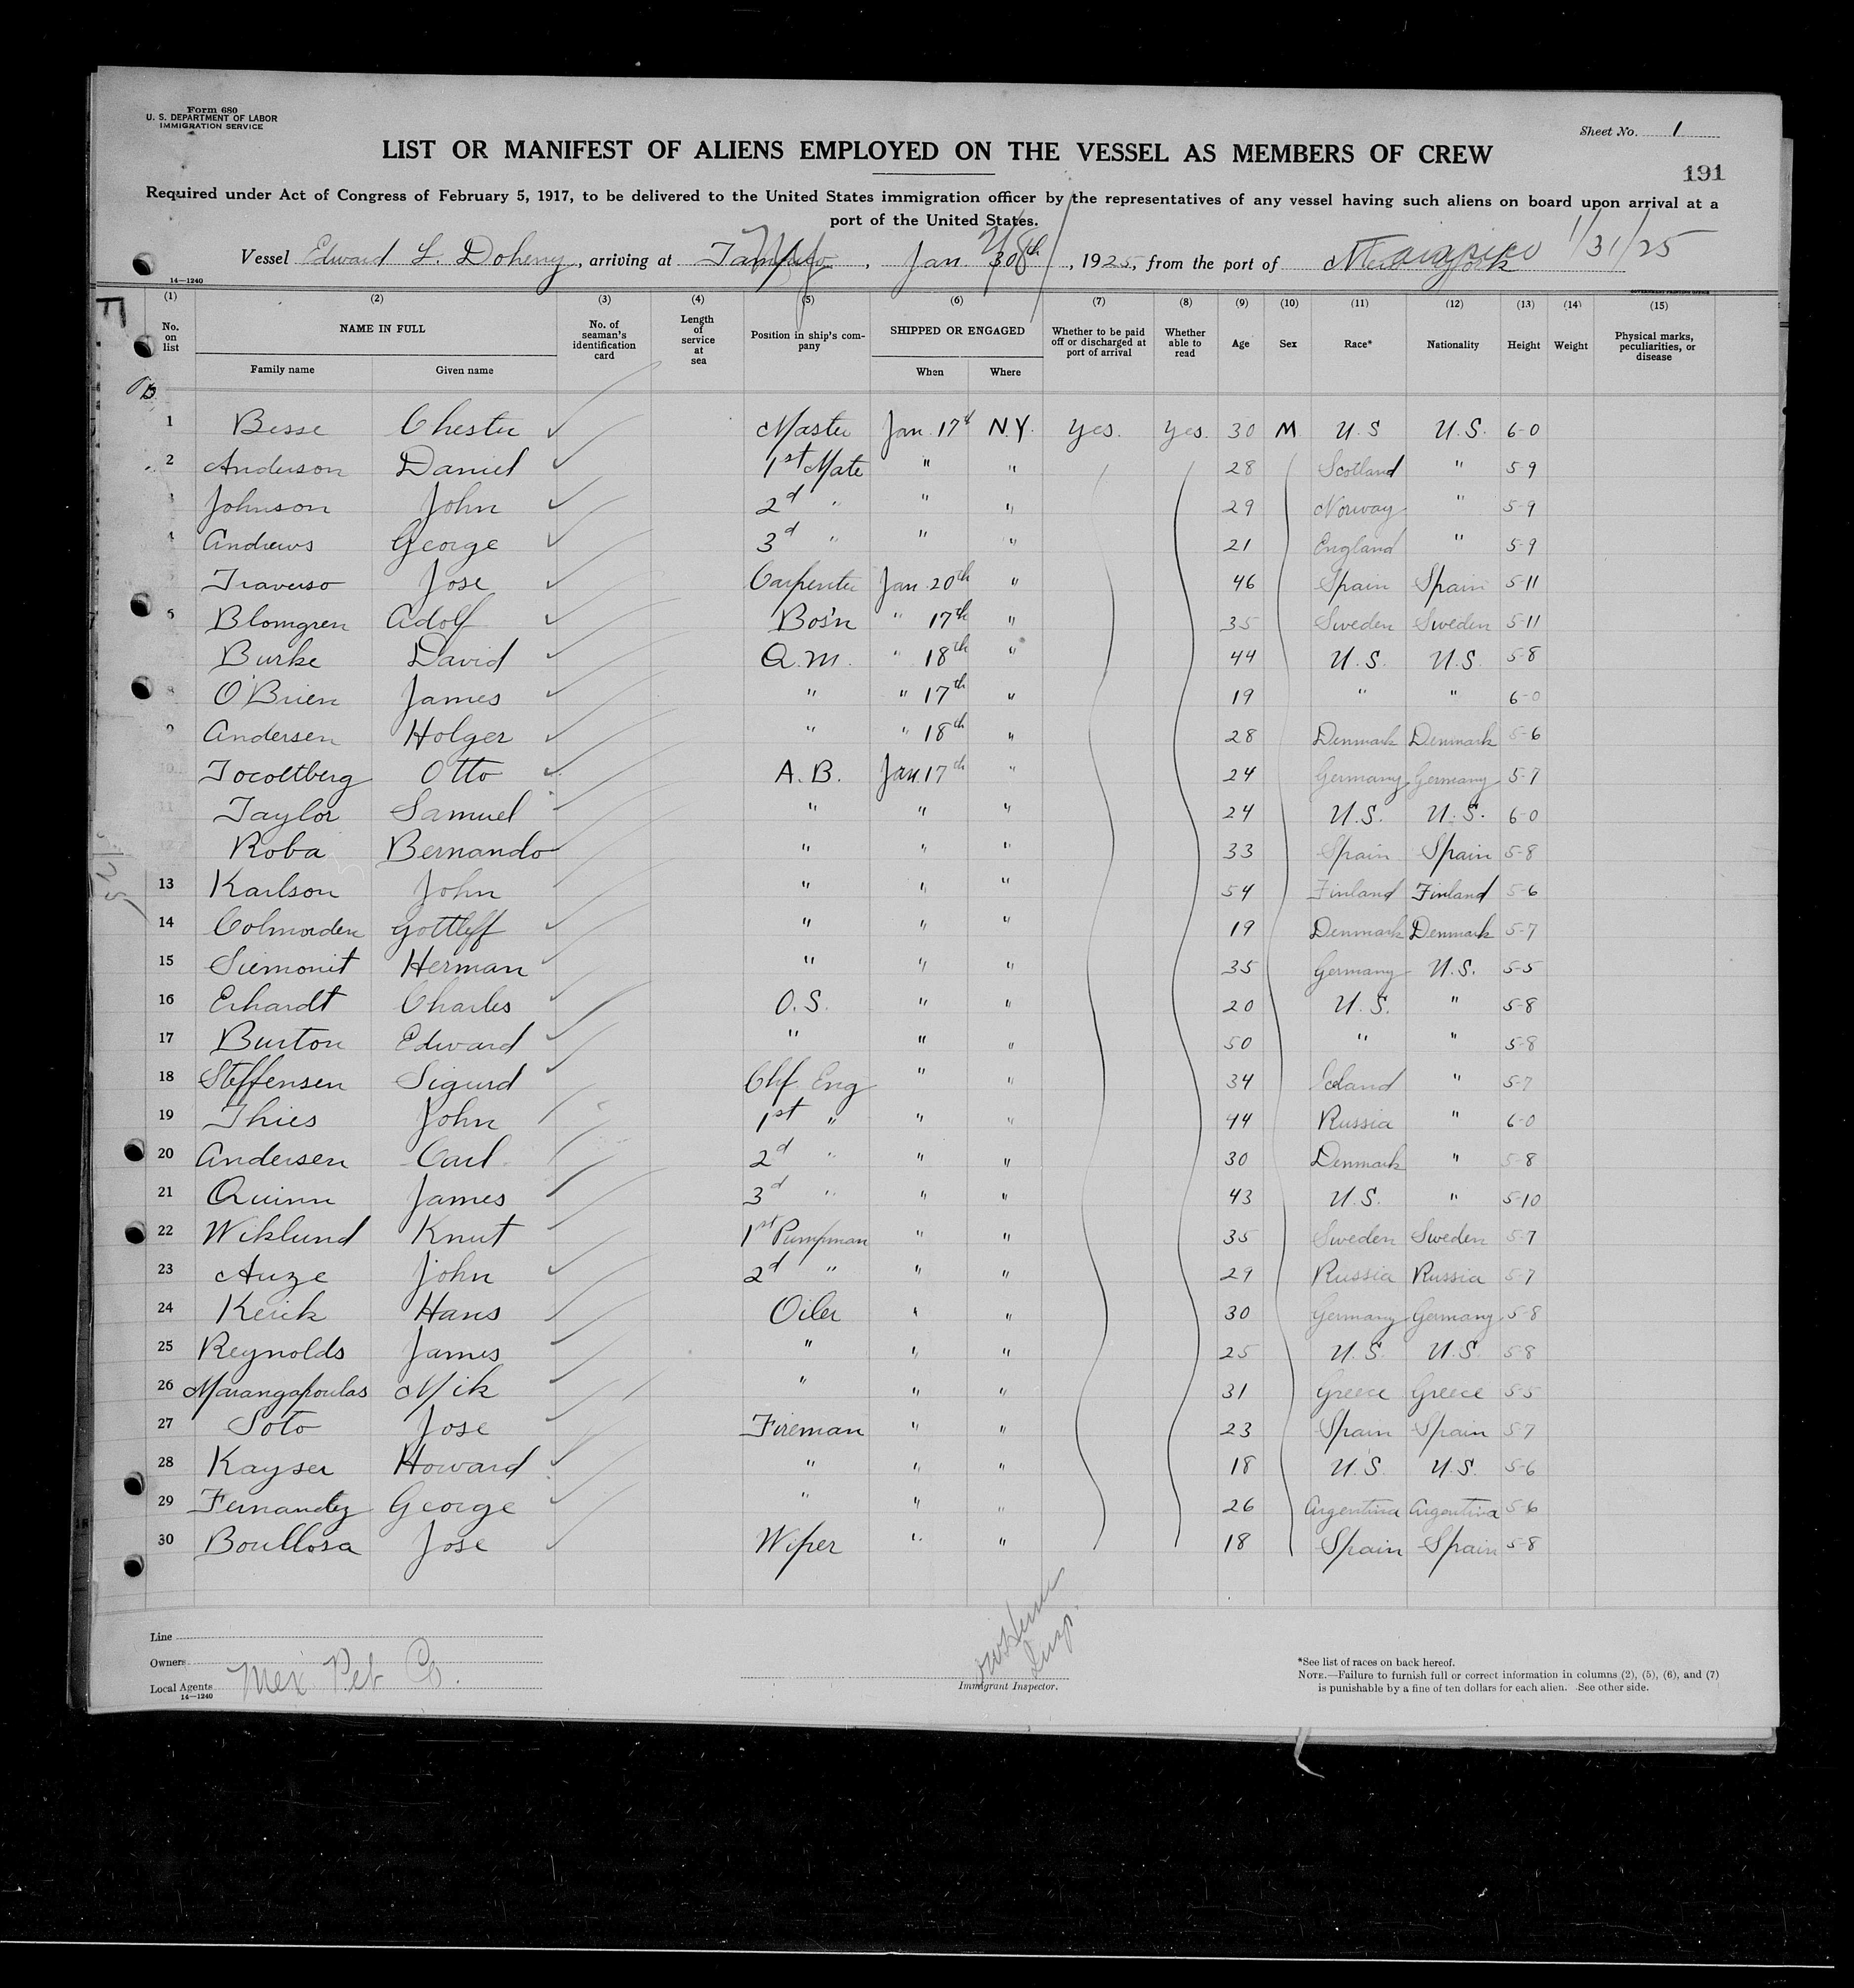 Form 680
U. S. DEPARTMENT OF LABOR
IMMIGRATION SERVICE
Sheet No. 1
LIST OR MANIFEST OF ALIENS EMPLOYED ON THE VESSEL AS MEMBERS OF CREW
191
Required under Act of Congress of February 5, 1917, to be delivered to the United States immigration officer by the representatives of any vessel having such aliens on board upon arrival at a
port of the United States.
Vessel Edward L. Doheny, arriving at , Jan. , 1925, from the port of Tampico 1/31/25
14—1240
(1) (2) (3) (4) (5) (6) (7) (8) (9) (10) (11) (12) (13) (14) (15)
No. on list NAME IN FULL Family name Given name No. of seaman's identification card Length of service at sea Position in ship's company SHIPPED OR ENGAGED When Where Whether to be paid off or discharged at port of arrival Whether able to read Age Sex Race* Nationality Height Weight Physical marks, peculiarities, or disease
1 Besse Chester Master Jan. 17th N.Y. Yes. Yes. 30 M U.S U.S. 6-0
2 Anderson Daniel 1st Mate " " 28 Scotland " 5-9
3 Johnson John 2d " " " 29 Norway " 5-9
4 Andrews George 3d " " " 21 England " 5-9
Traverso Jose Carpenter Jan. 20th " 46 Spain Spain 5-11
6 Blomgren Adolf Bos'n " 17th " 35 Sweden Sweden 5-11
Burke David Q.M. " 18th " 44 U.S. U.S. 5-8
8 O'Brien James " " 17th " 19 " " 6-0
9 Andersen Holger " " 18th " 28 Denmark Denmark 5-6
10 Otto A.B. Jan. 17th " 24 Germany Germany 5-7
11 Taylor Samuel " " " 24 U.S. U.S. 6-0
12 Roba Bernando " " " 33 Spain Spain 5-8
13 Karlson John " " " 54 Finland Finland 5-6
14 Colmorden Gottleff " " " 19 Denmark Denmark 5-7
15 Siemonit Herman " " " 35 Germany U.S. 5-5
16 Erhardt Charles O.S. " " 20 U.S. " 5-8
17 Burton Edward " " " 50 " " 5-8
18 Steffensen Sigurd Chf. Eng " " 34 Iceland " 5-7
19 Thies John 1st " " " 44 Russia " 6-0
20 Andersen Carl 2d " " " 30 Denmark " 5-8
21 Quinn James 3d " " " 43 U.S. " 5-10
22 Wiklund Knut 1st Pumpman " " 35 Sweden Sweden 5-7
23 Auze John 2d " " " 29 Russia Russia 5-7
24 Kerik Hans Oiler " " 30 Germany Germany 5-8
25 Reynolds James " " " 25 U.S. U.S. 5-8
26 Marangapoulas Mik " " " 31 Greece Greece 5-5
27 Soto Jose Fireman " " 23 Spain Spain 5-7
28 Kayser Howard " " " 18 U.S. U.S. 5-6
29 Fernandez George " " " 26 Argentina Argentina 5-6
30 Boullosa Jose Wiper " " 18 Spain Spain 5-8
Line
Owners
Local Agents Mex Pet Co.
14—1240
Insp.
Immigrant Inspector.
*See list of races on back hereof.
NOTE.—Failure to furnish full or correct information in columns (2), (5), (6), and (7)
is punishable by a fine of ten dollars for each alien. See other side.